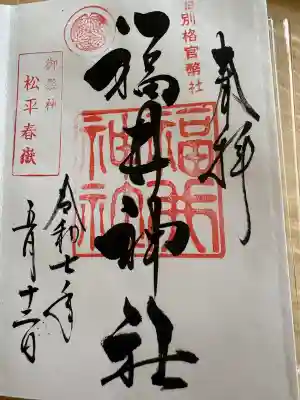 奉拝
旧別格官幣社
福井神社
福井神社
御祭神
松平春嶽
令和七年
五月十二日